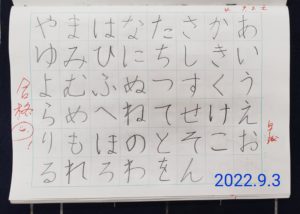 あいうえお
かきくけこ
さしすせそ
たちつてと
なにぬねの
はひふへほ
まみむめも
やゆよらりる
れろわをん
合格
2022.9.3